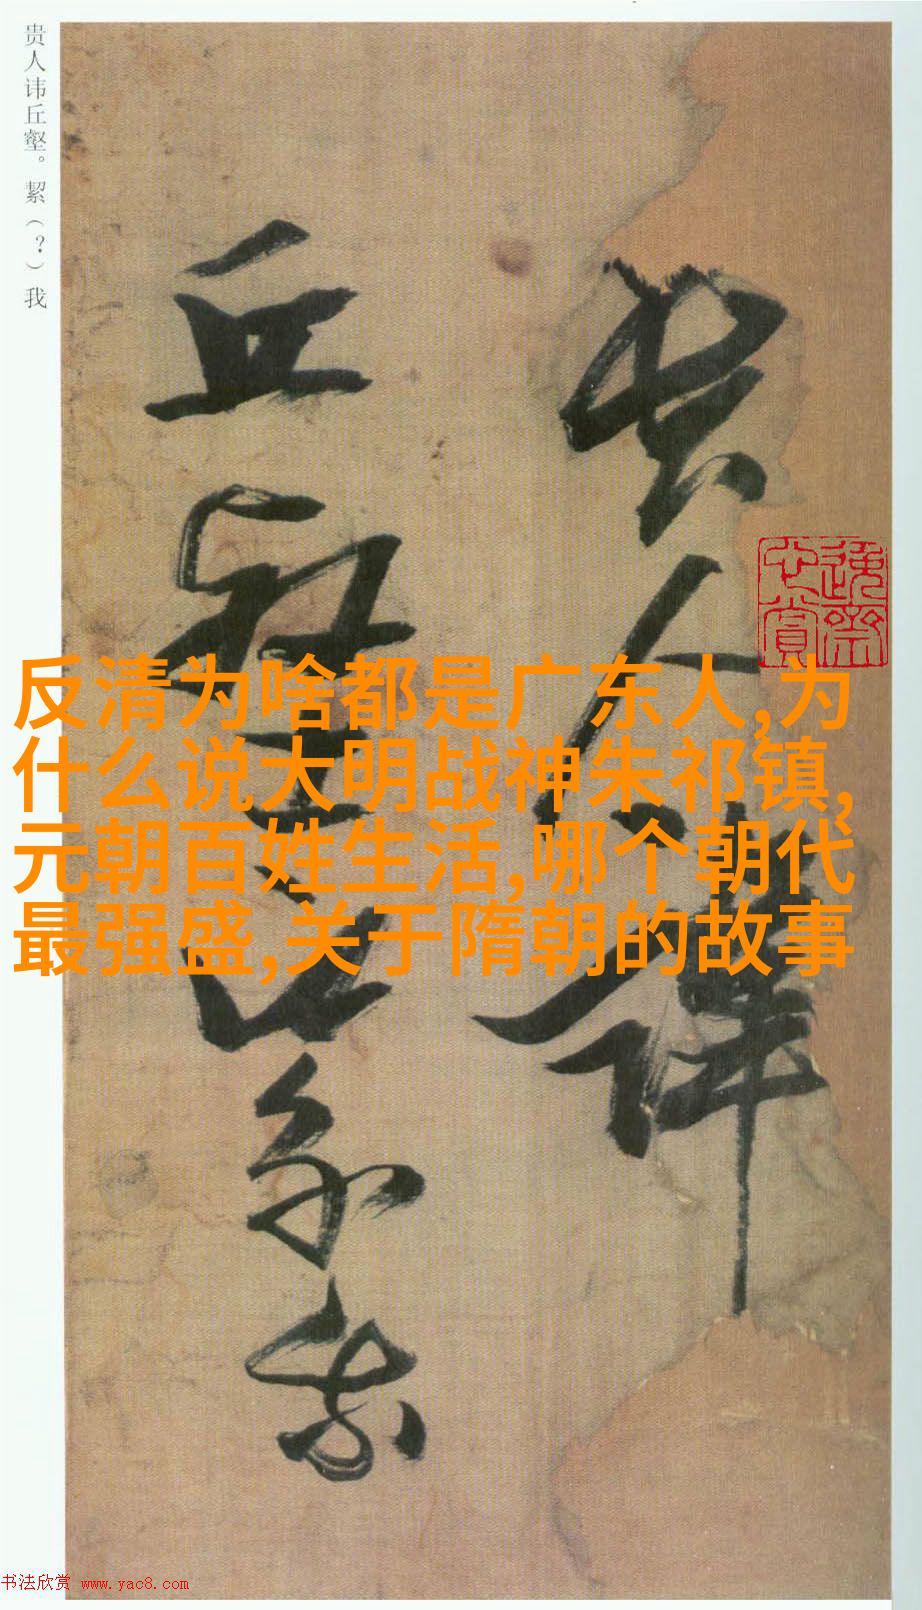 贵人讳丘壑。絜（？）我
贵人讳
丘壑以絜我
反清为啥都是广东人,为
什么说大明战神朱祁镇,
元朝百姓生活,哪个朝代
最强盛,关于隋朝的故事
书法欣赏 www.yac8.com